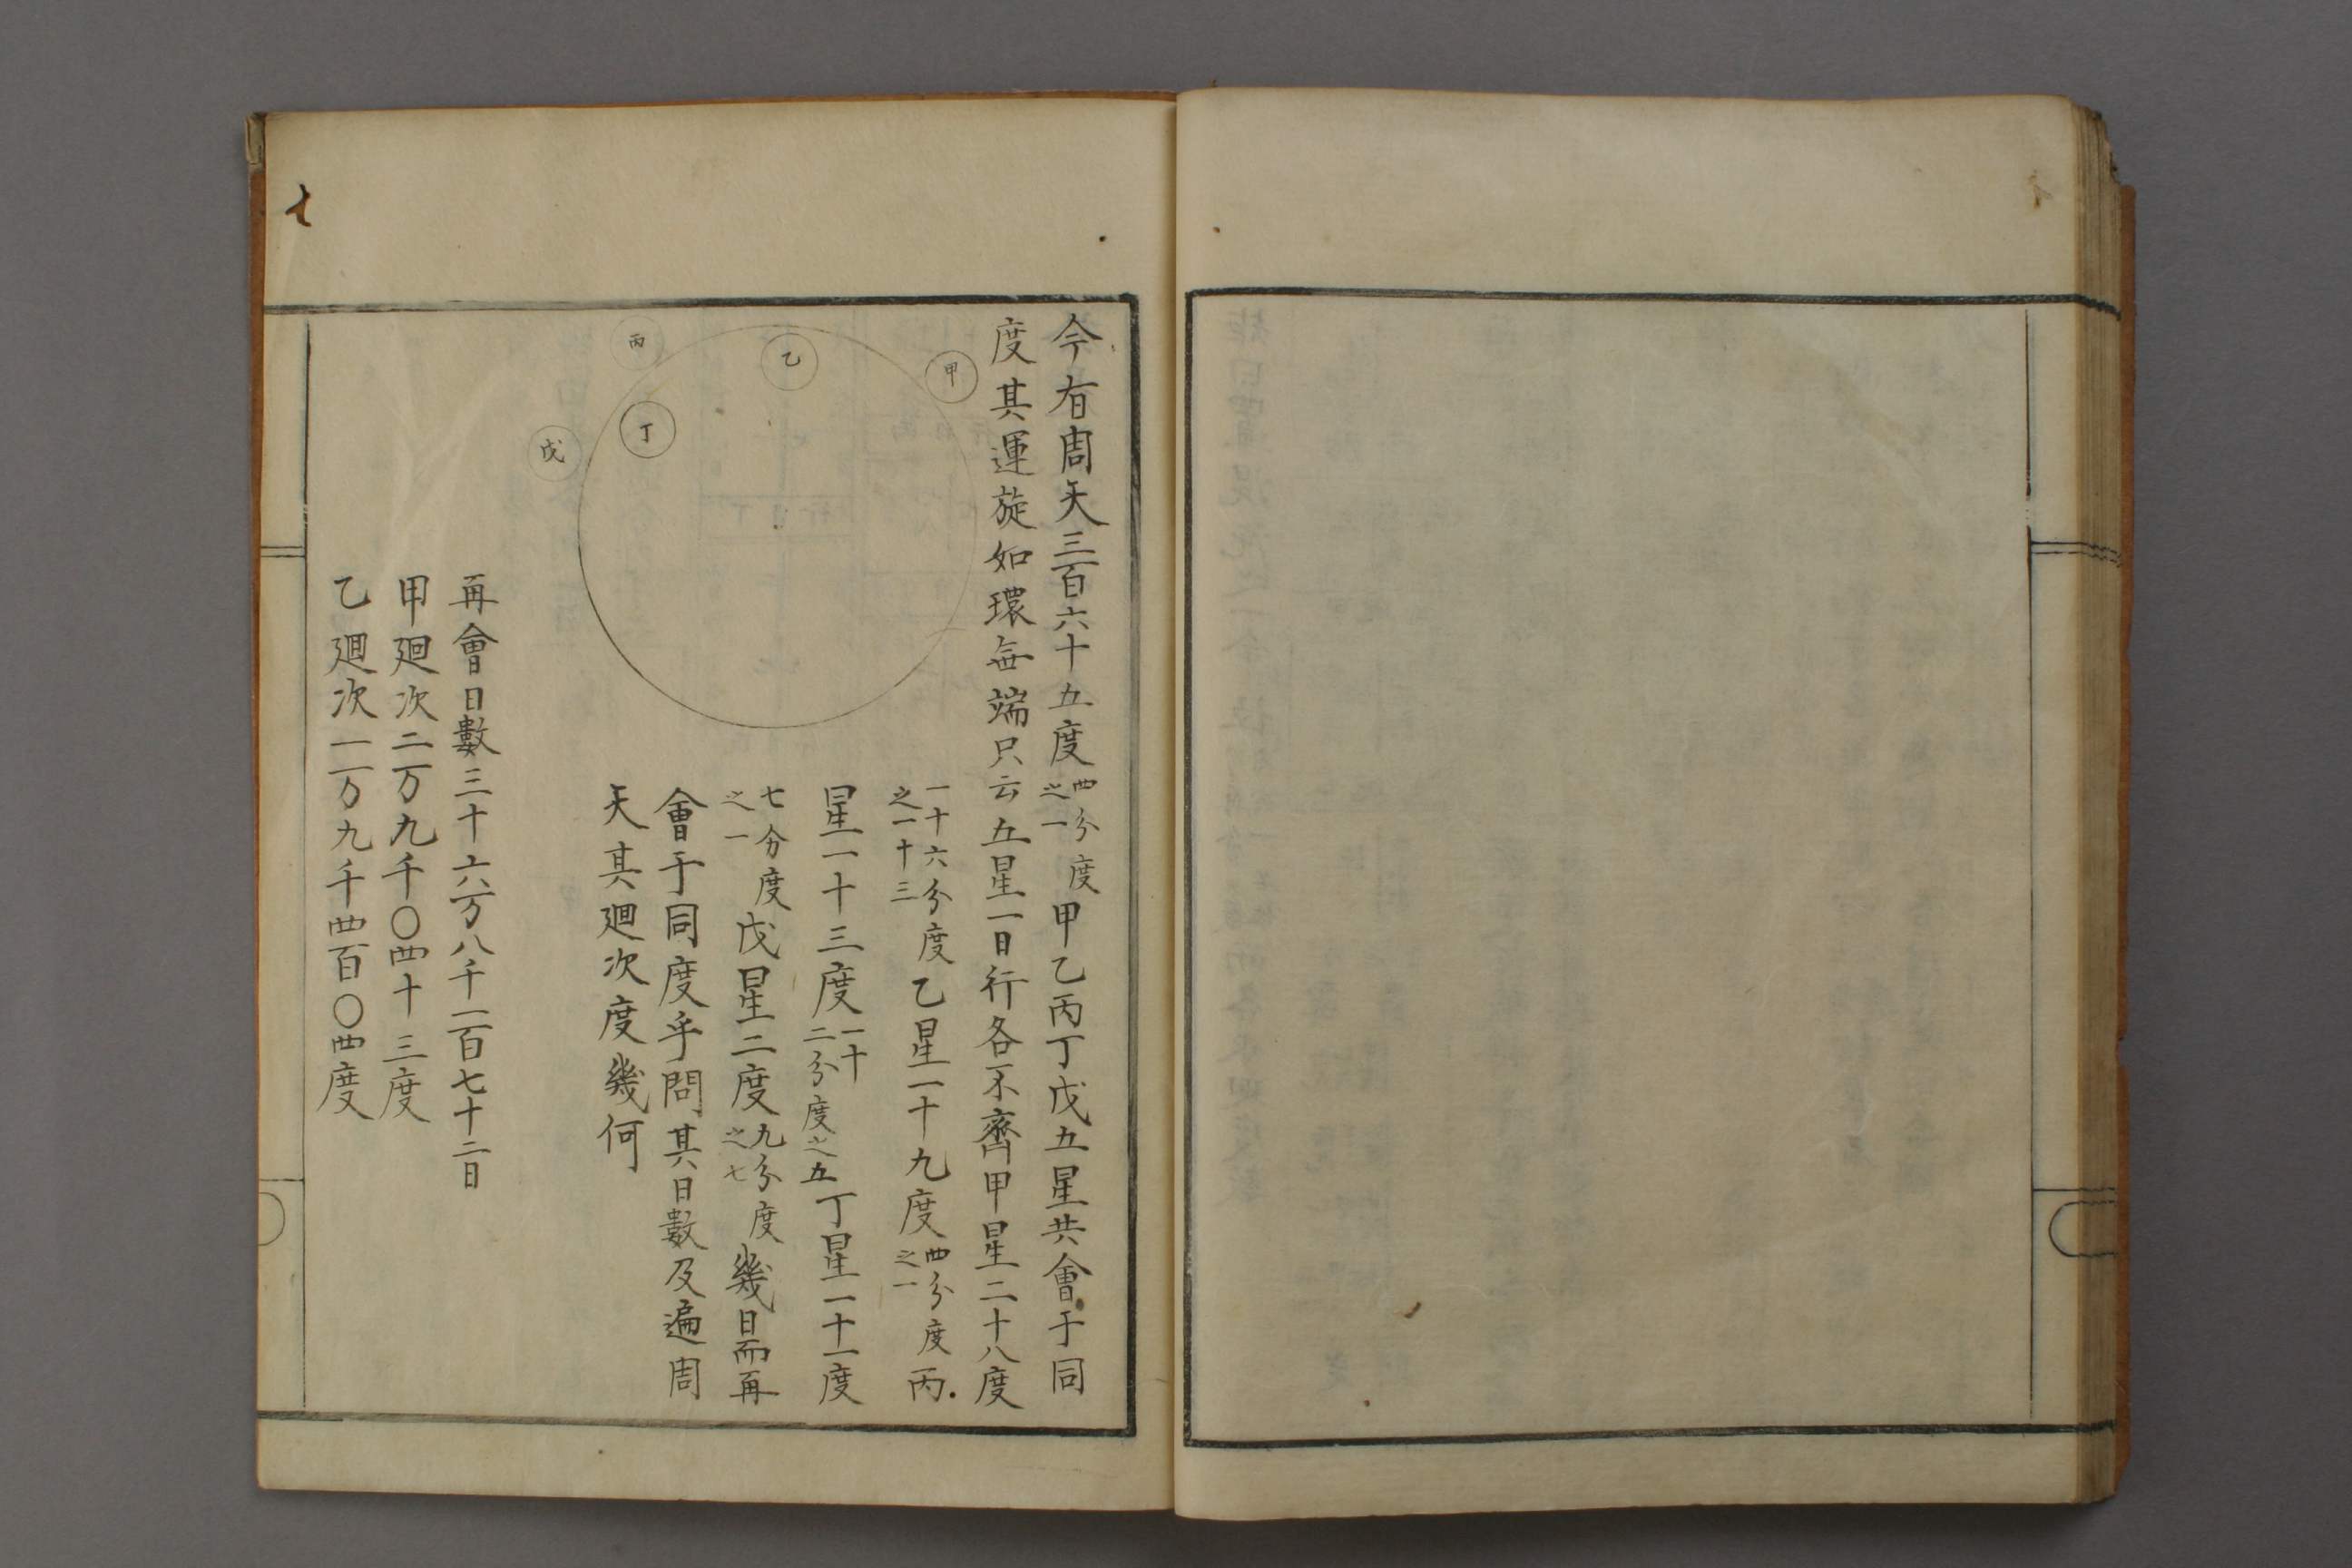 今有周天三百六十五度四分度之一甲乙丙丁戊五星共會于同
度其運旋如環無端只云五星一日行各不齊甲星二十八度
一十六分度之一十三乙星一十九度四分度之一丙
星一十三度一十二分度之五丁星一十一度
七分度之一戊星二度九分度之七幾日而再
會于同度乎問其日數及遍周
天其廻次度幾何
甲
乙
丙
丁
戊
再會日數三十六万八千一百七十二日
甲廻次二万九千〇四十三度
乙廻次一万九千四百〇四度